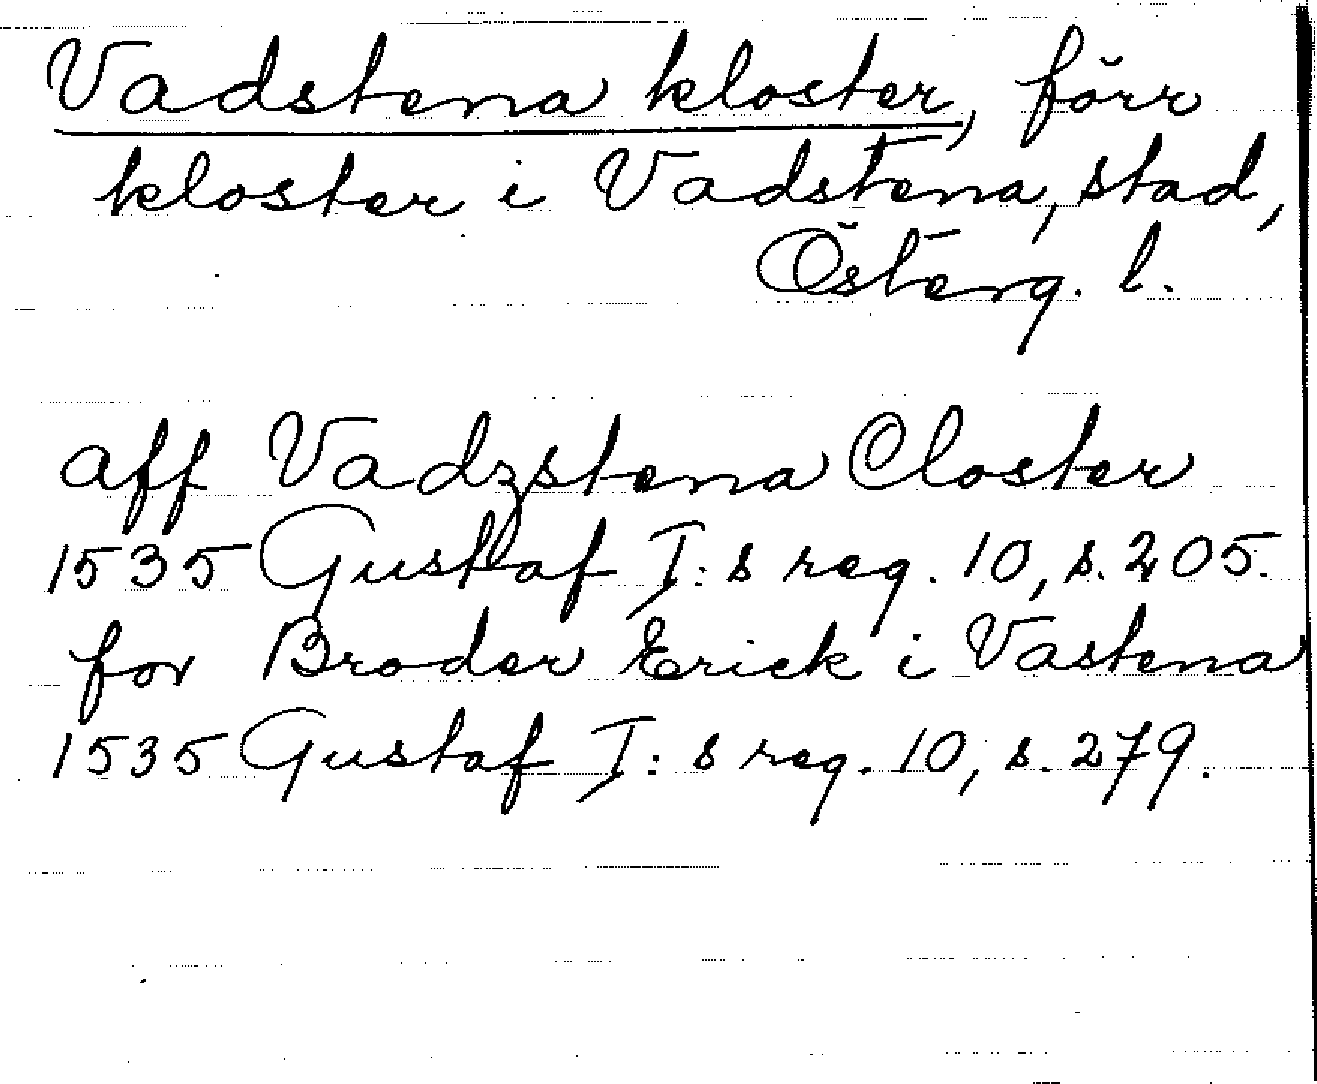 Vadstena kloster, förr
kloster i Vadstena, stad,
Österg. l.
aff Vadzstena Closter
1535 Gustaf I:s reg. 10, s. 205.
for Broder Erick i Vastena
1535 Gustaf I:s reg. 10, s. 279.